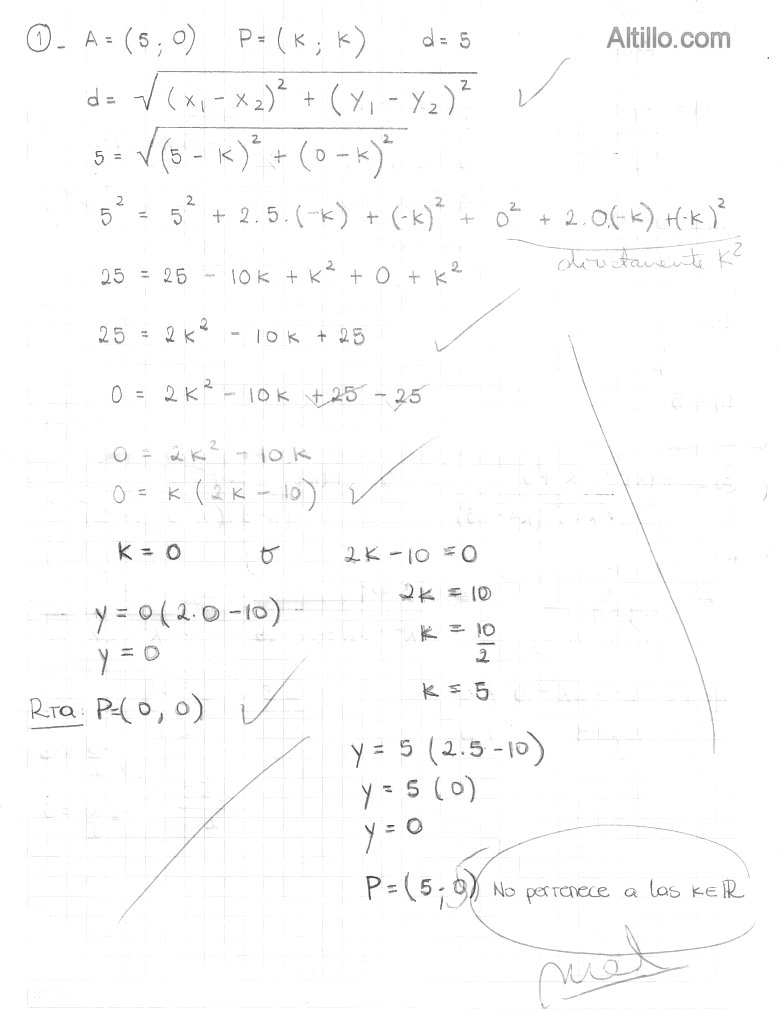 1- A = (5; 0) P = (k; k) d = 5
Altillo.com
d = √((x₁ - x₂)² + (y₁ - y₂)²)
5 = √((5 - k)² + (0 - k)²)
5² = 5² + 2.5.(-k) + (-k)² + 0² + 2.0.(-k) + (-k)²
directamente k²
25 = 25 - 10k + k² + 0 + k²
25 = 2k² - 10k + 25
0 = 2k² - 10k + 25 - 25
0 = 2k² - 10k
0 = k (2k - 10)
k = 0 ó 2k - 10 = 0
2k = 10
y = 0 (2.0 - 10)
k = 10/2
y = 0
k = 5
Rta: P = (0, 0)
y = 5 (2.5 - 10)
y = 5 (0)
y = 0
P = (5; 0) No pertenece a las k∈ℝ
mal